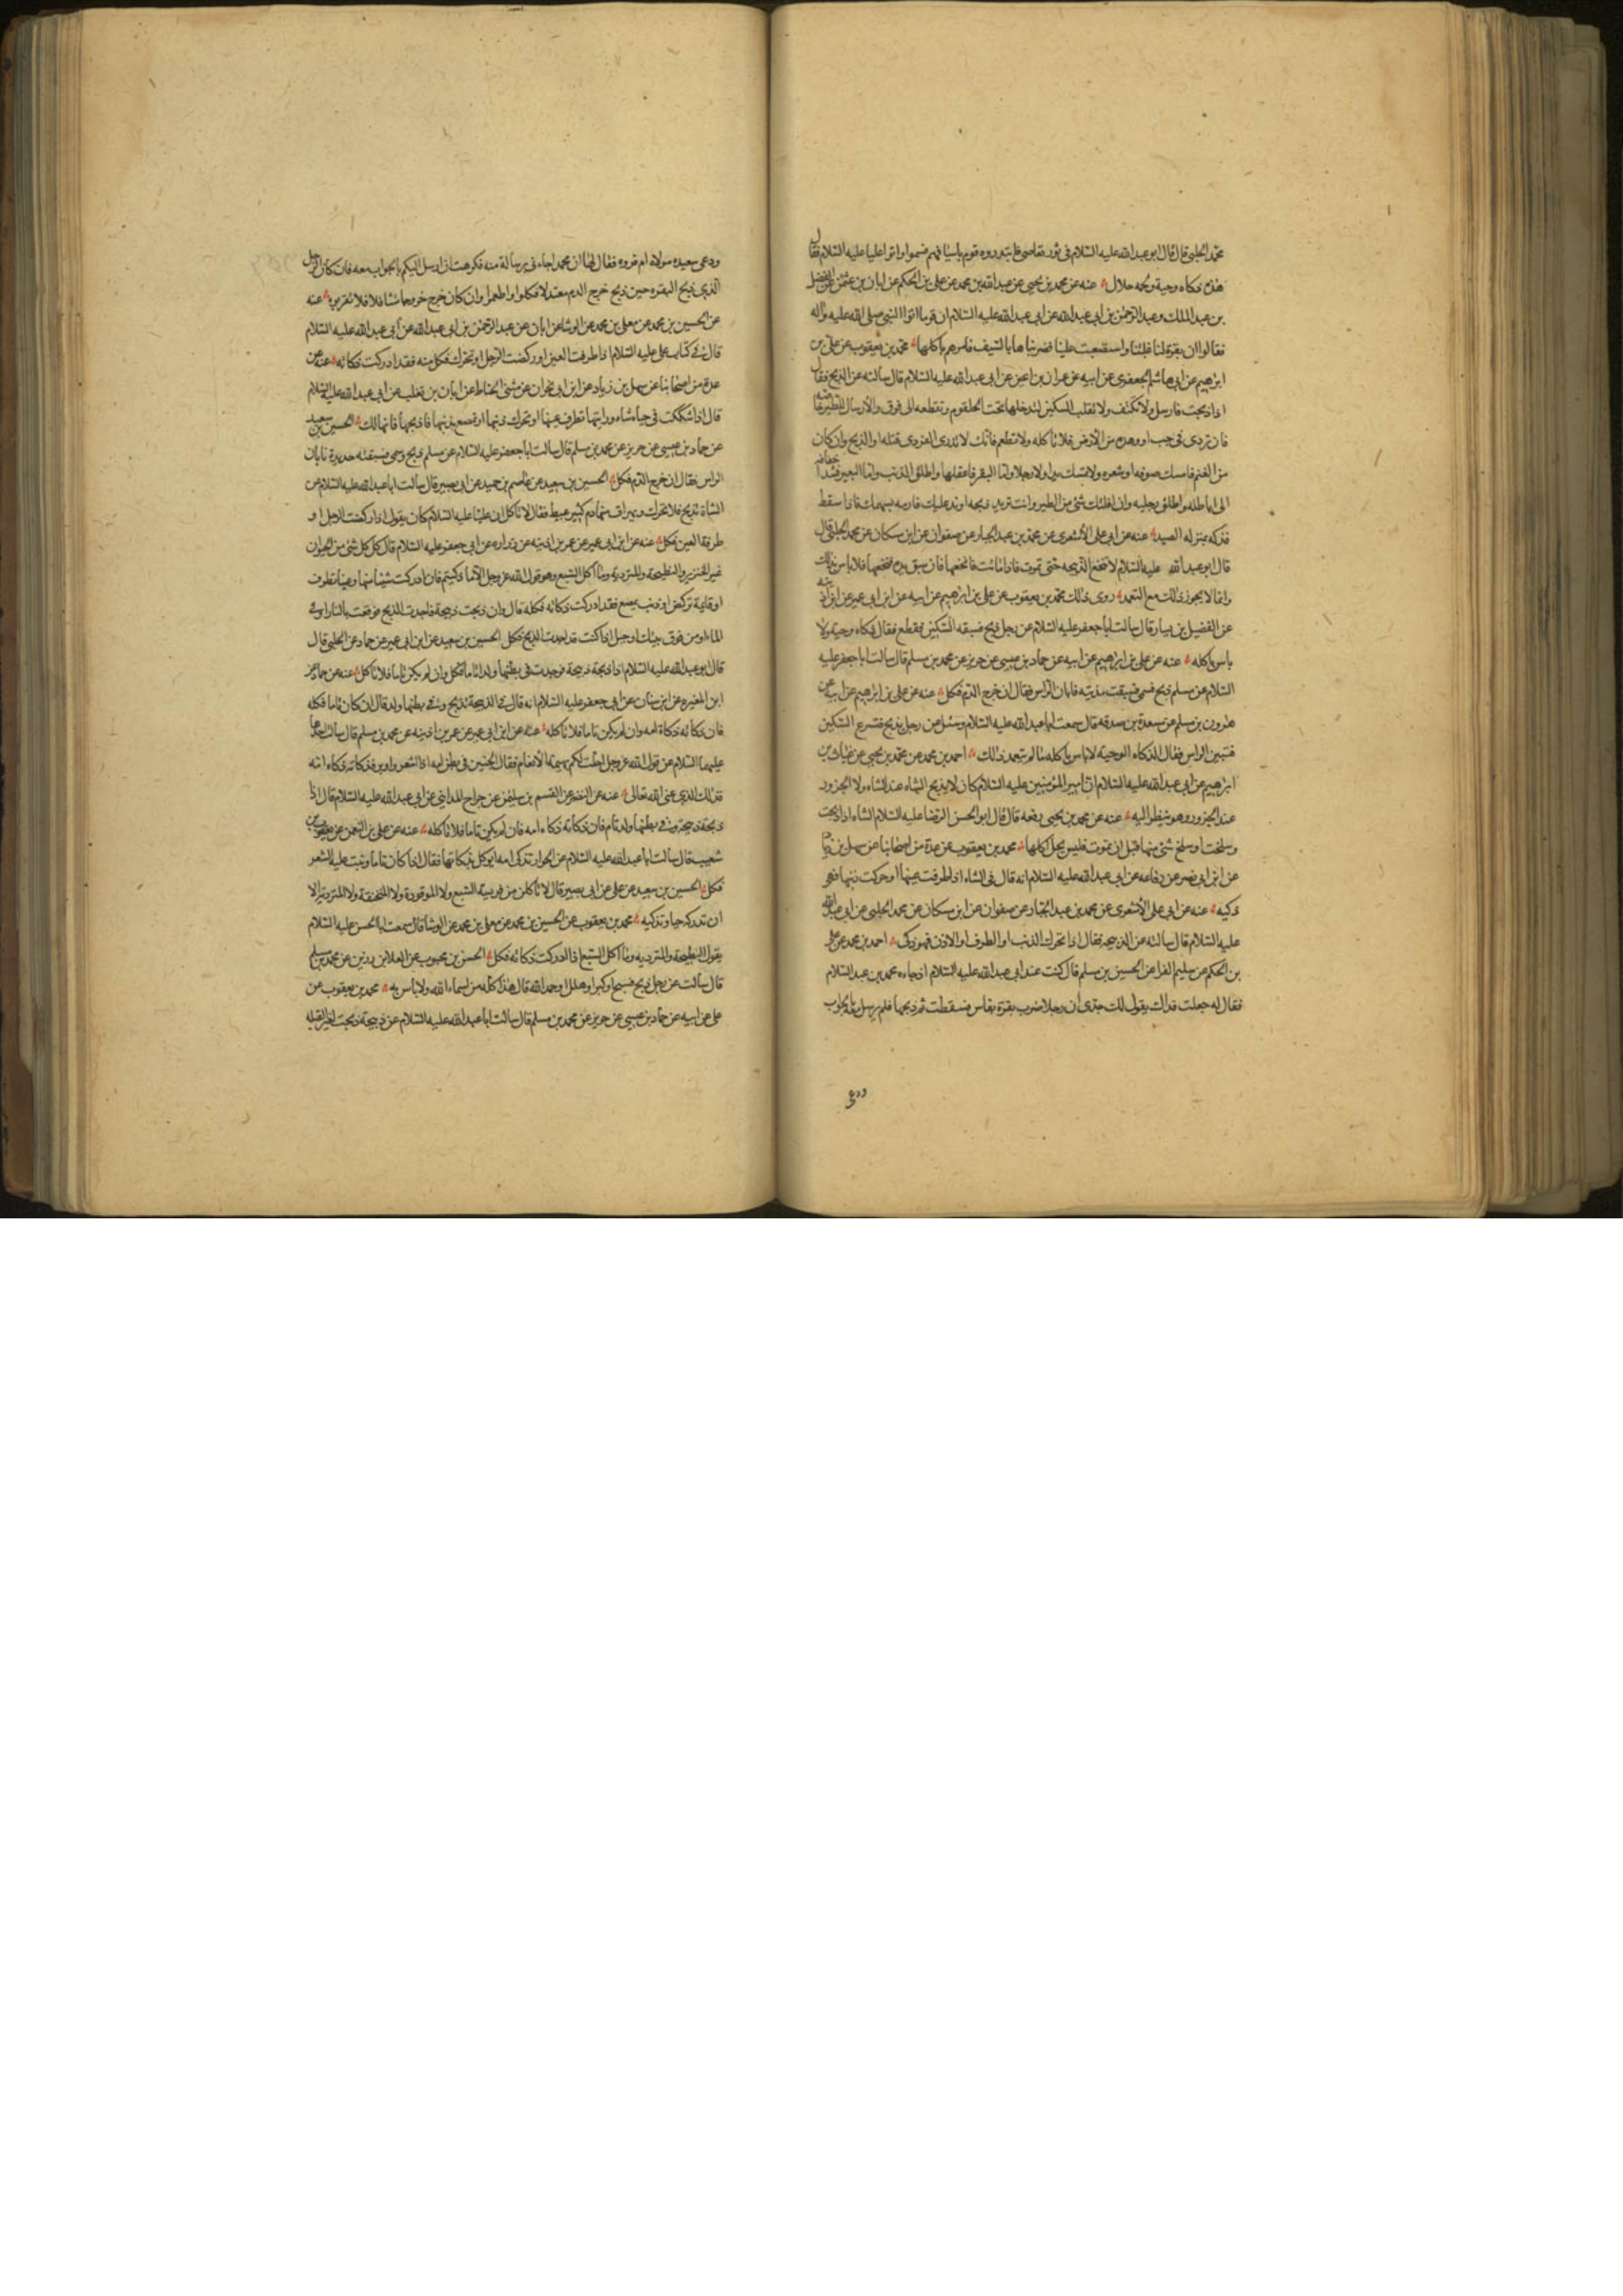 محمد الحلبي قال قال ابو عبد الله عليه السلام في ثور تعاصى فابتدروه قوم باسيافهم فسموا واتوا عليا عليه السلام فقال
هذه ذكاه وحية ولحمه حلال عنه عن محمد بن يحيى عن عبد الله بن محمد عن علي بن الحكم عن ابان بن عثمن عن الفضل
بن عبد الملك وعبد الرحمن بن ابي عبد الله عن ابي عبد الله عليه السلام ان قوما اتوا النبي صلى الله عليه واله
فقالوا ان بقرة لنا غلبتنا واستصعبت علينا فضربناها بالسيف فامرهم باكلها محمد بن يعقوب عن علي بن
ابرهيم عن ابي هاشم الجعفري عن ابيه عن حمران بن اعين عن ابي عبد الله عليه السلام قال سالته عن الذبح فقال
اذا ذبحت فارسل ولا تكتف ولا تقلب السكين لتدخلها تحت الحلقوم وتقطعه الى فوق والارسال للطير خاصه
فان تردى في جب او وهده من الارض فلا تاكله ولا تطعم فانك لا تدري التردي قتله او الذبح وان كان
من الغنم فامسك صوفه او شعره ولا تمسك يدا ولا رجلا واما البقر فاعقلها واطلق الذنب واما البعير فشد اخفافه
الى اباطه واطلق رجليه وان افلتك شئ من الطير وانت تريد ذبحه او ند عليك فارمه بسهمك فاذا سقط
فذكه بمنزله الصيد عنه عن ابي علي الاشعري عن محمد بن عبد الجبار عن صفوان عن ابن مسكان عن محمد الحلبي قال
قال ابو عبد الله عليه السلام لا تنخع الذبيحه حتى تموت فاذا ماتت فانخعها فان سبق يده فنخعها فلا باس بذلك
وانما لا يجوز ذلك مع التعمد روى ذلك محمد بن يعقوب عن علي بن ابرهيم عن ابيه عن ابن ابي عمير عن ابن اذينه
عن الفضيل بن يسار قال سالت ابا جعفر عليه السلام عن رجل ذبح فسبقه السكين فقطع فقال ذكاه وحية ولا
باس باكله عنه عن علي بن ابرهيم عن ابيه عن حماد بن عيسى عن حريز عن محمد بن مسلم قال سالت ابا جعفر عليه
السلام عن مسلم ذبح فسمى فسبقت مديته فابان الراس فقال ان خرج الدم فكل عنه عن علي بن ابرهيم عن ابيه عن
هرون بن مسلم عن مسعدة بن صدقه قال سمعت ابا عبد الله عليه السلام وسئل عن رجل يذبح فتسرع السكين
فتبين الراس فقال الذكاه الوحيه لا باس باكله ما لم يتعمد ذلك احمد بن محمد عن محمد بن يحيى عن غياث بن
ابرهيم عن ابي عبد الله عليه السلام ان امير المؤمنين عليه السلام كان لا يذبح الشاه عند الشاه ولا الجزور
عند الجزور وهو ينظر اليه عنه عن محمد بن يحيى رفعه قال قال ابو الحسن الرضا عليه السلام الشاه اذا ذبحت
وسلخت او سلخ شئ منها قبل ان تموت فليس يحل اكلها محمد بن يعقوب عن عدة من اصحابنا عن سهل بن زياد
عن ابن ابي نصر عن رفاعه عن ابي عبد الله عليه السلام انه قال في الشاه اذا طرفت عينها او حركت ذنبها فهي
ذكيه عنه عن ابي علي الاشعري عن محمد بن عبد الجبار عن صفوان عن ابن مسكان عن محمد الحلبي عن ابي عبد الله
عليه السلام قال سالته عن الذبيحه فقال اذا تحرك الذنب او الطرف او الاذن فهو ذكي احمد بن محمد عن علي
بن الحكم عن سليم الفرا عن الحسين بن مسلم قال كنت عند ابي عبد الله عليه السلام اذ جاءه محمد بن عبد السلام
فقال له جعلت فداك يقول لك جدي ان رجلا ضرب بقرة بفاس فسقطت ثم ذبحها فلم يرسل معه بالجواب
ودعى
ودعى سعيده مولاه ام فروه فقال لها ان محمدا جاءني برسالة منه فكرهت ان ارسل اليكم بالجواب معه فان كان الرجل
الذي ذبح البقره حين ذبح خرج الدم معتدلا فكلوا واطعموا وان كان خرج خروجا متثاقلا فلا تقربوه عنه
عن الحسين بن محمد عن معلى بن محمد عن الوشا عن ابان عن عبد الرحمن بن ابي عبد الله عن ابي عبد الله عليه السلام
قال في كتاب علي عليه السلام اذا طرفت العين او ركضت الرجل او تحرك الذنب فكل منه فقد ادركت ذكاته عنه عن
عدة من اصحابنا عن سهل بن زياد عن ابن ابي نجران عن مثنى الحناط عن ابان بن تغلب عن ابي عبد الله عليه السلام
قال اذا شككت في حياه شاه ورايتها تطرف عينها او تحرك ذنبها او تمصع بذنبها فاذبحها فانها لك الحسين بن سعيد
عن حماد بن عيسى عن حريز عن محمد بن مسلم قال سالت ابا جعفر عليه السلام عن مسلم ذبح وسمى فسبقته حديدته فابان
الراس فقال ان خرج الدم فكل الحسين بن سعيد عن عاصم بن حميد عن ابي بصير قال سالت ابا عبد الله عليه السلام عن
الشاة تذبح فلا تحرك ويهراق منها دم كثير عبيط فقال لا تاكل ان عليا عليه السلام كان يقول اذا ركضت الرجل او
طرفت العين فكل عنه عن ابن ابي عمير عن عمر بن اذينه عن زراره عن ابي جعفر عليه السلام قال كل كل شئ من الحيوان
غير الخنزير والنطيحة والمترديه وما اكل السبع وهو قول الله عز وجل الا ما ذكيتم فان ادركت شيئا منها وعينا تطرف
او قايمة تركض او ذنب يمصع فقد ادركت ذكاته فكله قال وان ذبحت ذبيحة فاجدت الذبح فوقعت بالنار او في
الماء او من فوق بيتك او جبل اذا كنت قد اجدت الذبح فكل الحسين بن سعيد عن ابن ابي عمير عن حماد عن الحلبي قال
قال ابو عبد الله عليه السلام اذا ذبحت ذبيحة فوجدت في بطنها ولدا تاما فكل وان لم يكن تاما فلا تاكل عنه عن
ابن المغيره عن ابن سنان عن ابي جعفر عليه السلام انه قال في الذبيحة تذبح وفي بطنها ولد قال ان كان تاما فكله
فان ذكاته ذكاة امه وان لم يكن تاما فلا تاكله عنه عن ابن ابي عمير عن عمر بن اذينه عن محمد بن مسلم قال سالت احدهما
عليهما السلام عن قول الله عز وجل احلت لكم بهيمة الانعام فقال الجنين في بطن امه اذا اشعر واوبر فذكاته ذكاه امه
فذلك الذي عنى الله تعالى عنه عن النضر عن القسم بن سليمن عن جراح المدايني عن ابي عبد الله عليه السلام قال اذا
ذبحت ذبيحة وفي بطنها ولد تام فان ذكاته ذكاه امه فان لم يكن تاما فلا تاكله عنه عن علي بن النعمن عن يعقوب بن
شعيب قال سالت ابا عبد الله عليه السلام عن الحوار تذكى امه ايوكل بذكاتها فقال اذا كان تاما ونبت عليه الشعر
فكل الحسين بن سعيد عن علي عن ابي بصير قال لا تاكلن من فريسة السبع ولا الموقوذة ولا المنخنقة ولا المترديه الا
ان تدركه حيا وتذكيه محمد بن يعقوب عن الحسين بن محمد عن معلى بن محمد عن الوشا قال سمعت ابا الحسن عليه السلام
يقول النطيحة والمترديه وما اكل السبع اذا ادركت ذكاته فكل الحسن بن محبوب عن العلا بن رزين عن محمد بن مسلم
قال سالت عن رجل ذبح فسبح او كبر او هلل او حمد الله قال هذا كله من اسماء الله ولا باس به محمد بن يعقوب عن
علي عن ابيه عن حماد بن عيسى عن حريز عن محمد بن مسلم قال سالت ابا عبد الله عليه السلام عن ذبيحة ذبحت لغير القبله